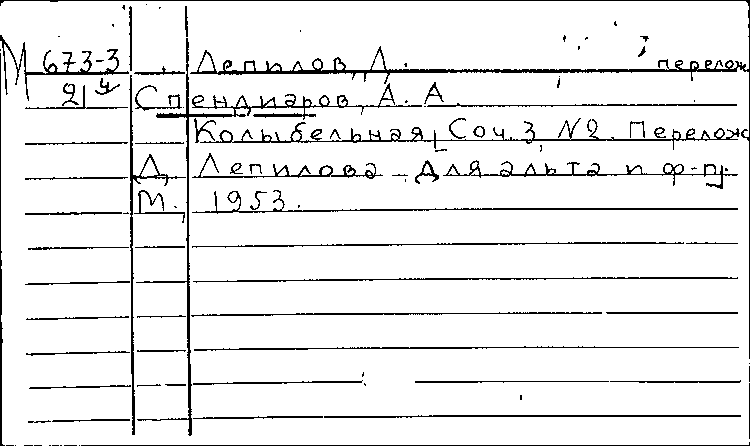 М 673-3 Лепилов, Д. перелож
21 Спендиаров, А. А.
Колыбельная, Соч. 3, N2. Перелож
Д. Лепилова. Для альта и ф-п.
М., 1953.